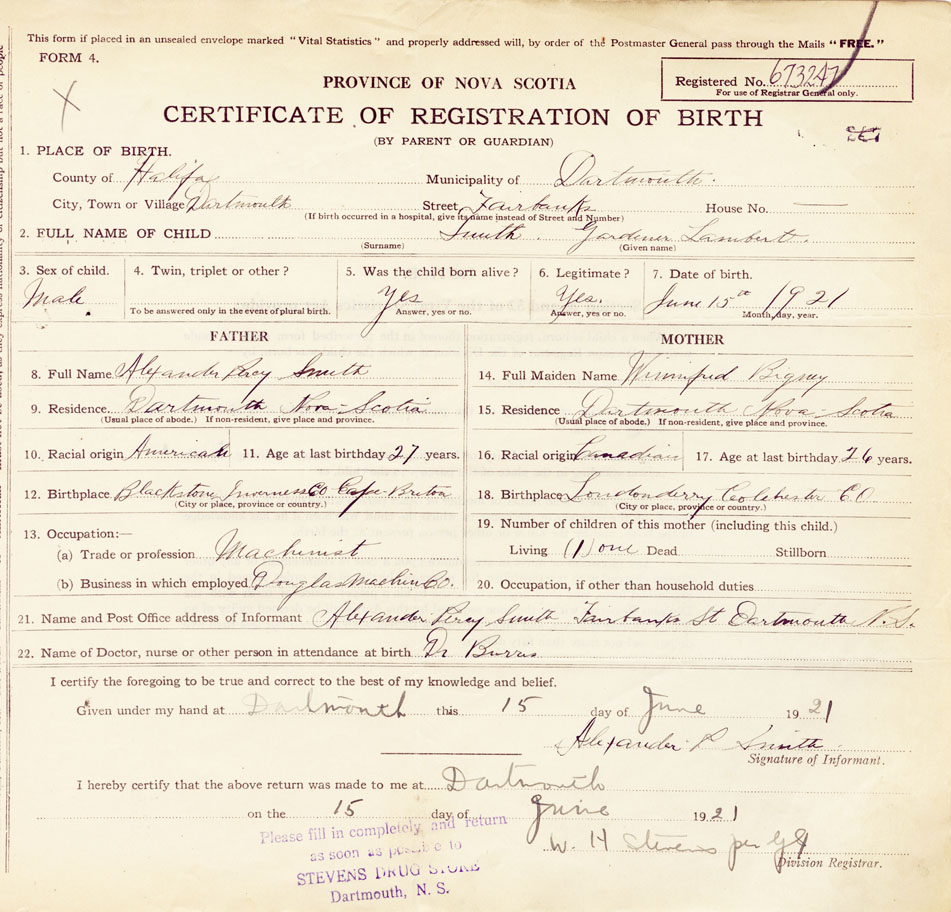 This form if placed in an unsealed envelope marked "Vital Statistics" and properly addressed will, by order of the Postmaster General pass through the Mails "FREE."
FORM 4.
PROVINCE OF NOVA SCOTIA
Registered No. 673247
For use of Registrar General only.
CERTIFICATE OF REGISTRATION OF BIRTH
(BY PARENT OR GUARDIAN)
1. PLACE OF BIRTH.
County of Halifax Municipality of Dartmouth.
City, Town or Village Dartmouth Street Fairbanks House No. —
(If birth occurred in a hospital, give its name instead of Street and Number)
2. FULL NAME OF CHILD Smith. Gardener Lambert.
(Surname) (Given name)
3. Sex of child. 4. Twin, triplet or other? 5. Was the child born alive? 6. Legitimate? 7. Date of birth.
Male. Yes Yes. June 15th 1921
To be answered only in the event of plural birth. Answer, yes or no. Answer, yes or no. Month, day, year.
FATHER MOTHER
8. Full Name Alexander Percy Smith 14. Full Maiden Name Winnifred Bigney
9. Residence. Dartmouth Nova-Scotia 15. Residence Dartmouth Nova-Scotia
(Usual place of abode.) If non-resident, give place and province. (Usual place of abode.) If non-resident, give place and province.
10. Racial origin American 11. Age at last birthday 27 years. 16. Racial origin Canadian 17. Age at last birthday 26 years.
12. Birthplace Blackstone Inverness CO Cape-Briton 18. Birthplace Londonderry Colchester CO
(City or place, province or country.) (City or place, province or country.)
13. Occupation:— 19. Number of children of this mother (including this child.)
(a) Trade or profession Machinist Living (1) one Dead Stillborn
(b) Business in which employed Douglas Machin CO. 20. Occupation, if other than household duties
21. Name and Post Office address of Informant Alexander Percy Smith Fairbanks St Dartmouth N.S.
22. Name of Doctor, nurse or other person in attendance at birth Dr Burris
I certify the foregoing to be true and correct to the best of my knowledge and belief.
Given under my hand at Dartmouth this 15 day of June 1921
Alexander P Smith
Signature of Informant.
I hereby certify that the above return was made to me at Dartmouth
on the 15 day of June 1921
W. H Stevens per
Division Registrar.
Please fill in completely and return
as soon as possible to
STEVENS DRUG STORE
Dartmouth, N. S.